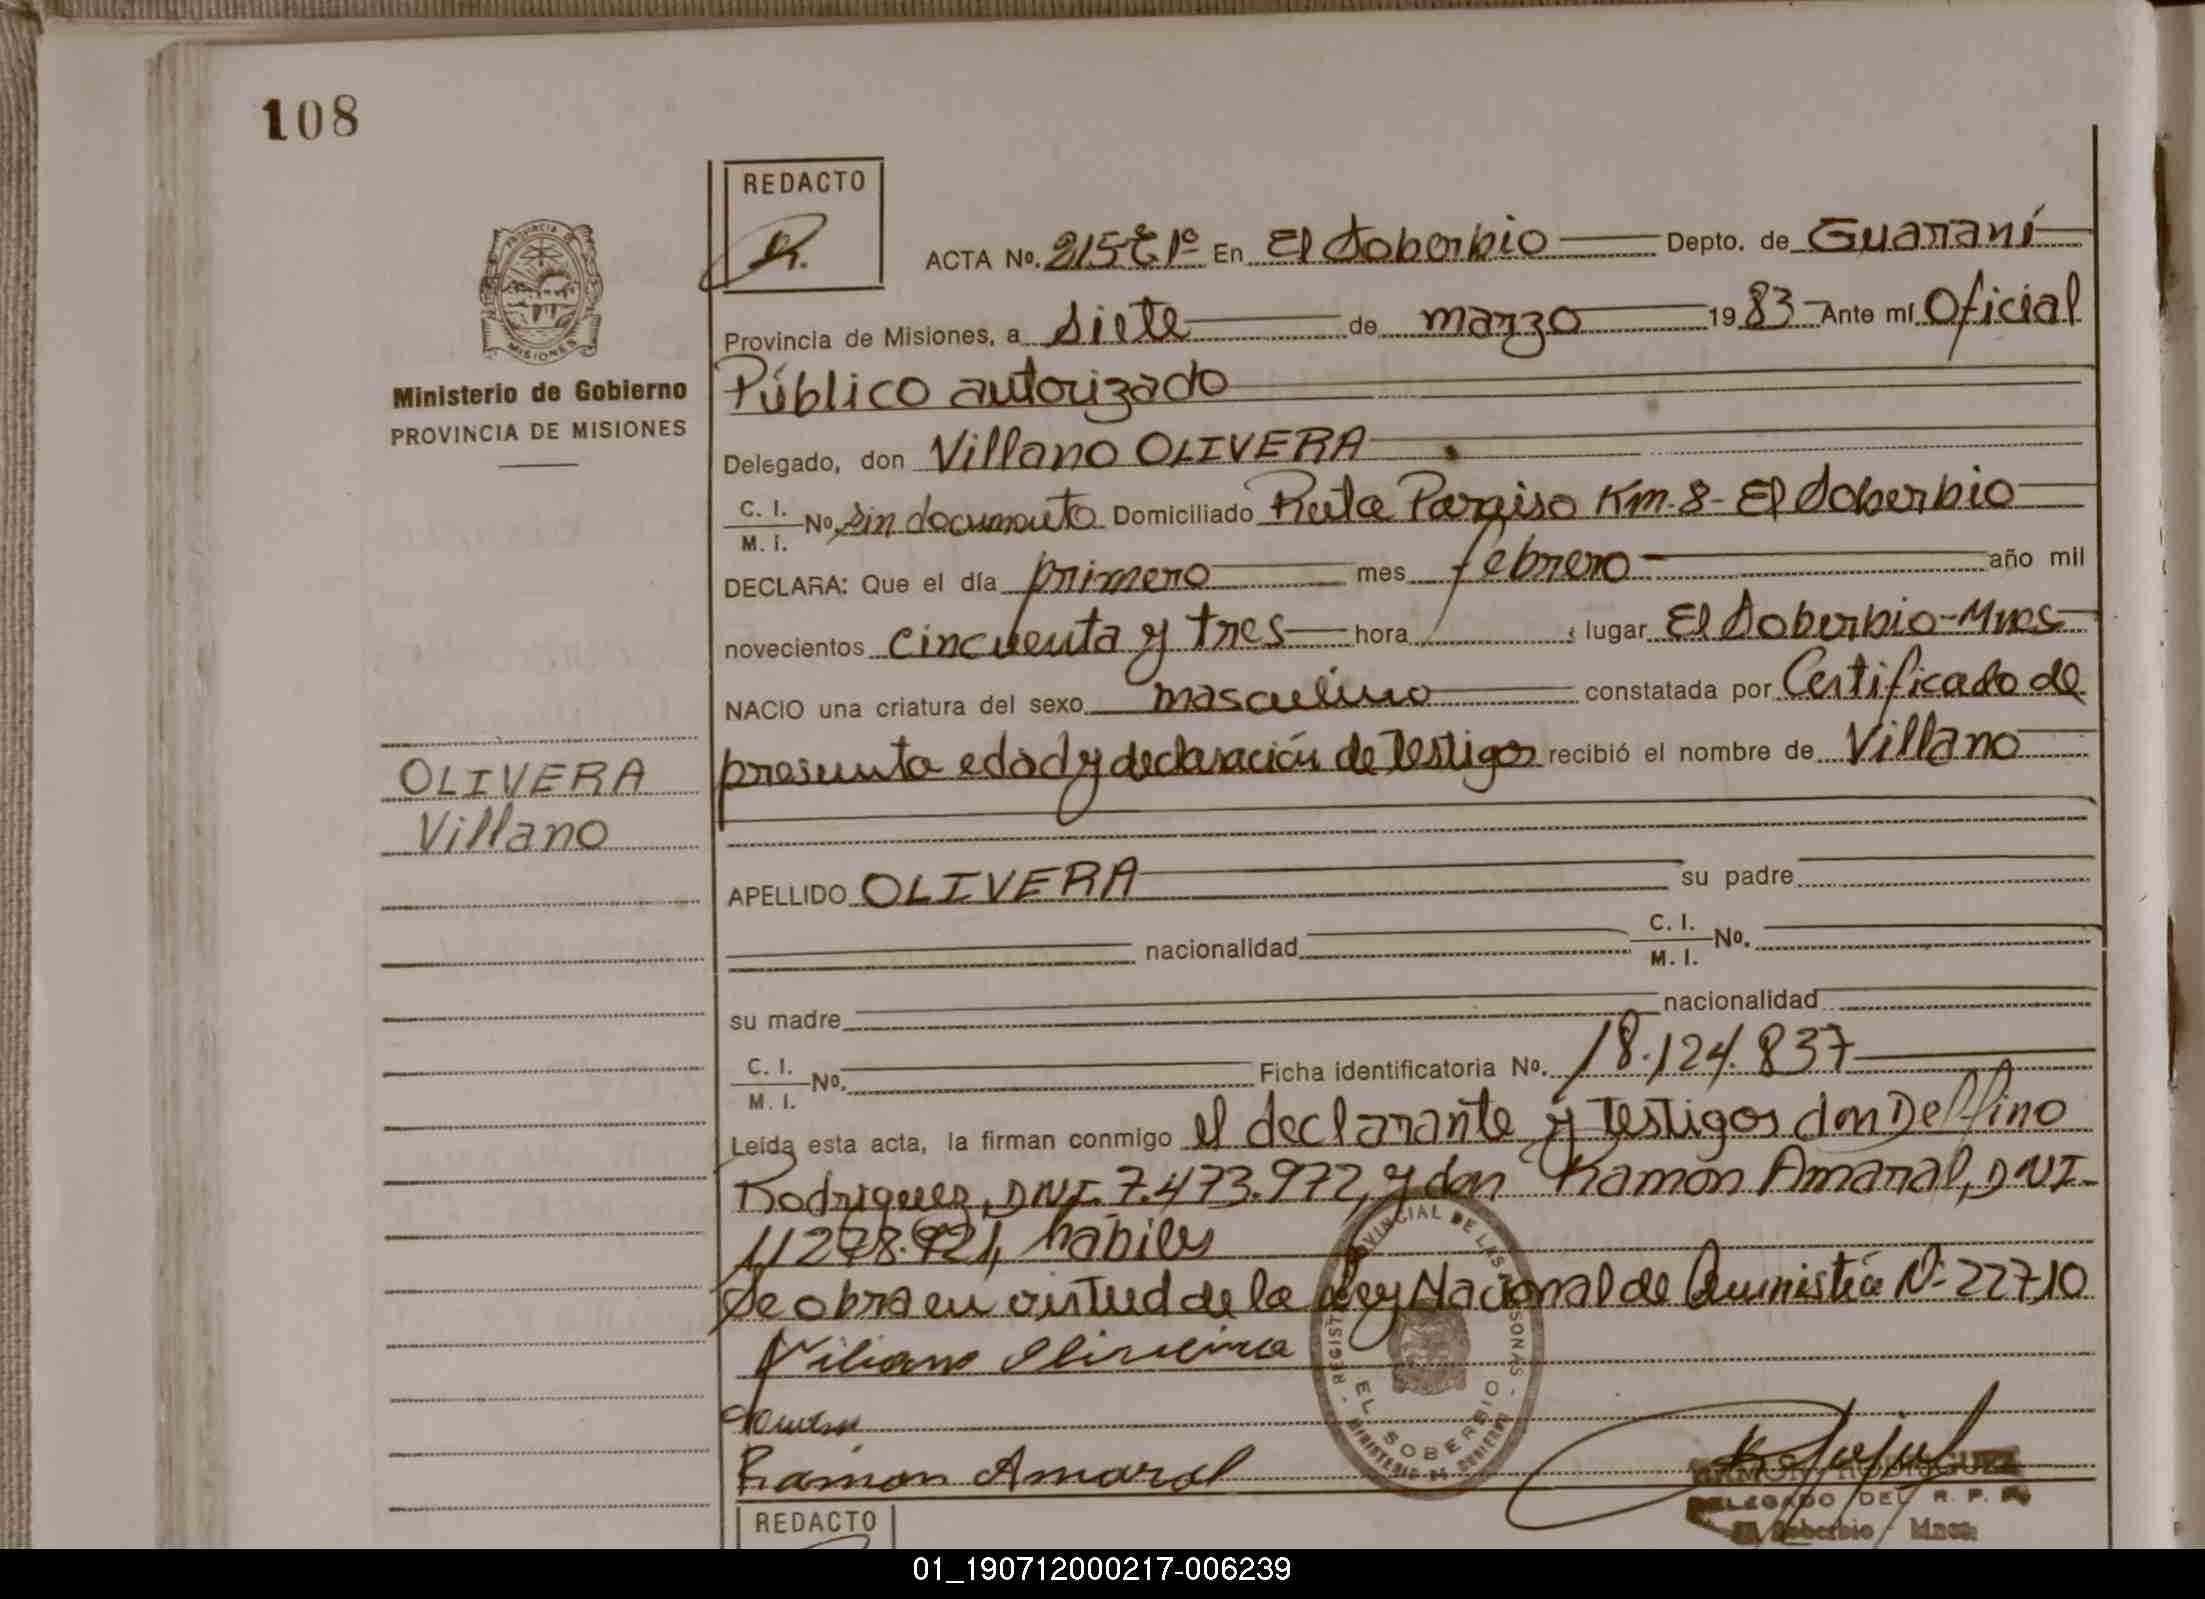 108
REDACTO
ACTA No. 215 T 1º En El Soberbio Depto. de Guaraní
Provincia de Misiones, a siete de marzo 1983 Ante mí Oficial
Ministerio de Gobierno
PROVINCIA DE MISIONES
Público autorizado
Delegado, don Villano OLIVERA
C. I.
M. I. No. sin documento Domiciliado Ruta Paraiso Km. 8 - El Soberbio
DECLARA: Que el día primero mes febrero año mil
novecientos cincuenta y tres hora lugar El Soberbio - Mnes
NACIO una criatura del sexo masculino constatada por Certificado de
presunta edad y declaración de testigos recibió el nombre de Villano
OLIVERA
Villano
APELLIDO OLIVERA su padre
nacionalidad C. I.
M. I. No.
su madre nacionalidad
C. I.
M. I. No. Ficha identificatoria No. 18.124.837
Leída esta acta, la firman conmigo el declarante y testigos don Delfino
Rodriguez, DNI. 7.473.972, y don Ramon Amaral, DNI.
11278.921, hábiles
Se obra en virtud de la Ley Nacional de Amnistía Nº 22710
Ramon Amaral
REGISTRO PROVINCIAL DE LAS PERSONAS
EL SOBERBIO
MINISTERIO DE GOBIERNO
RAMON RODRIGUEZ
DELEGADO DEL R. P. P.
El Soberbio - Mnes.
REDACTO
01_190712000217-006239